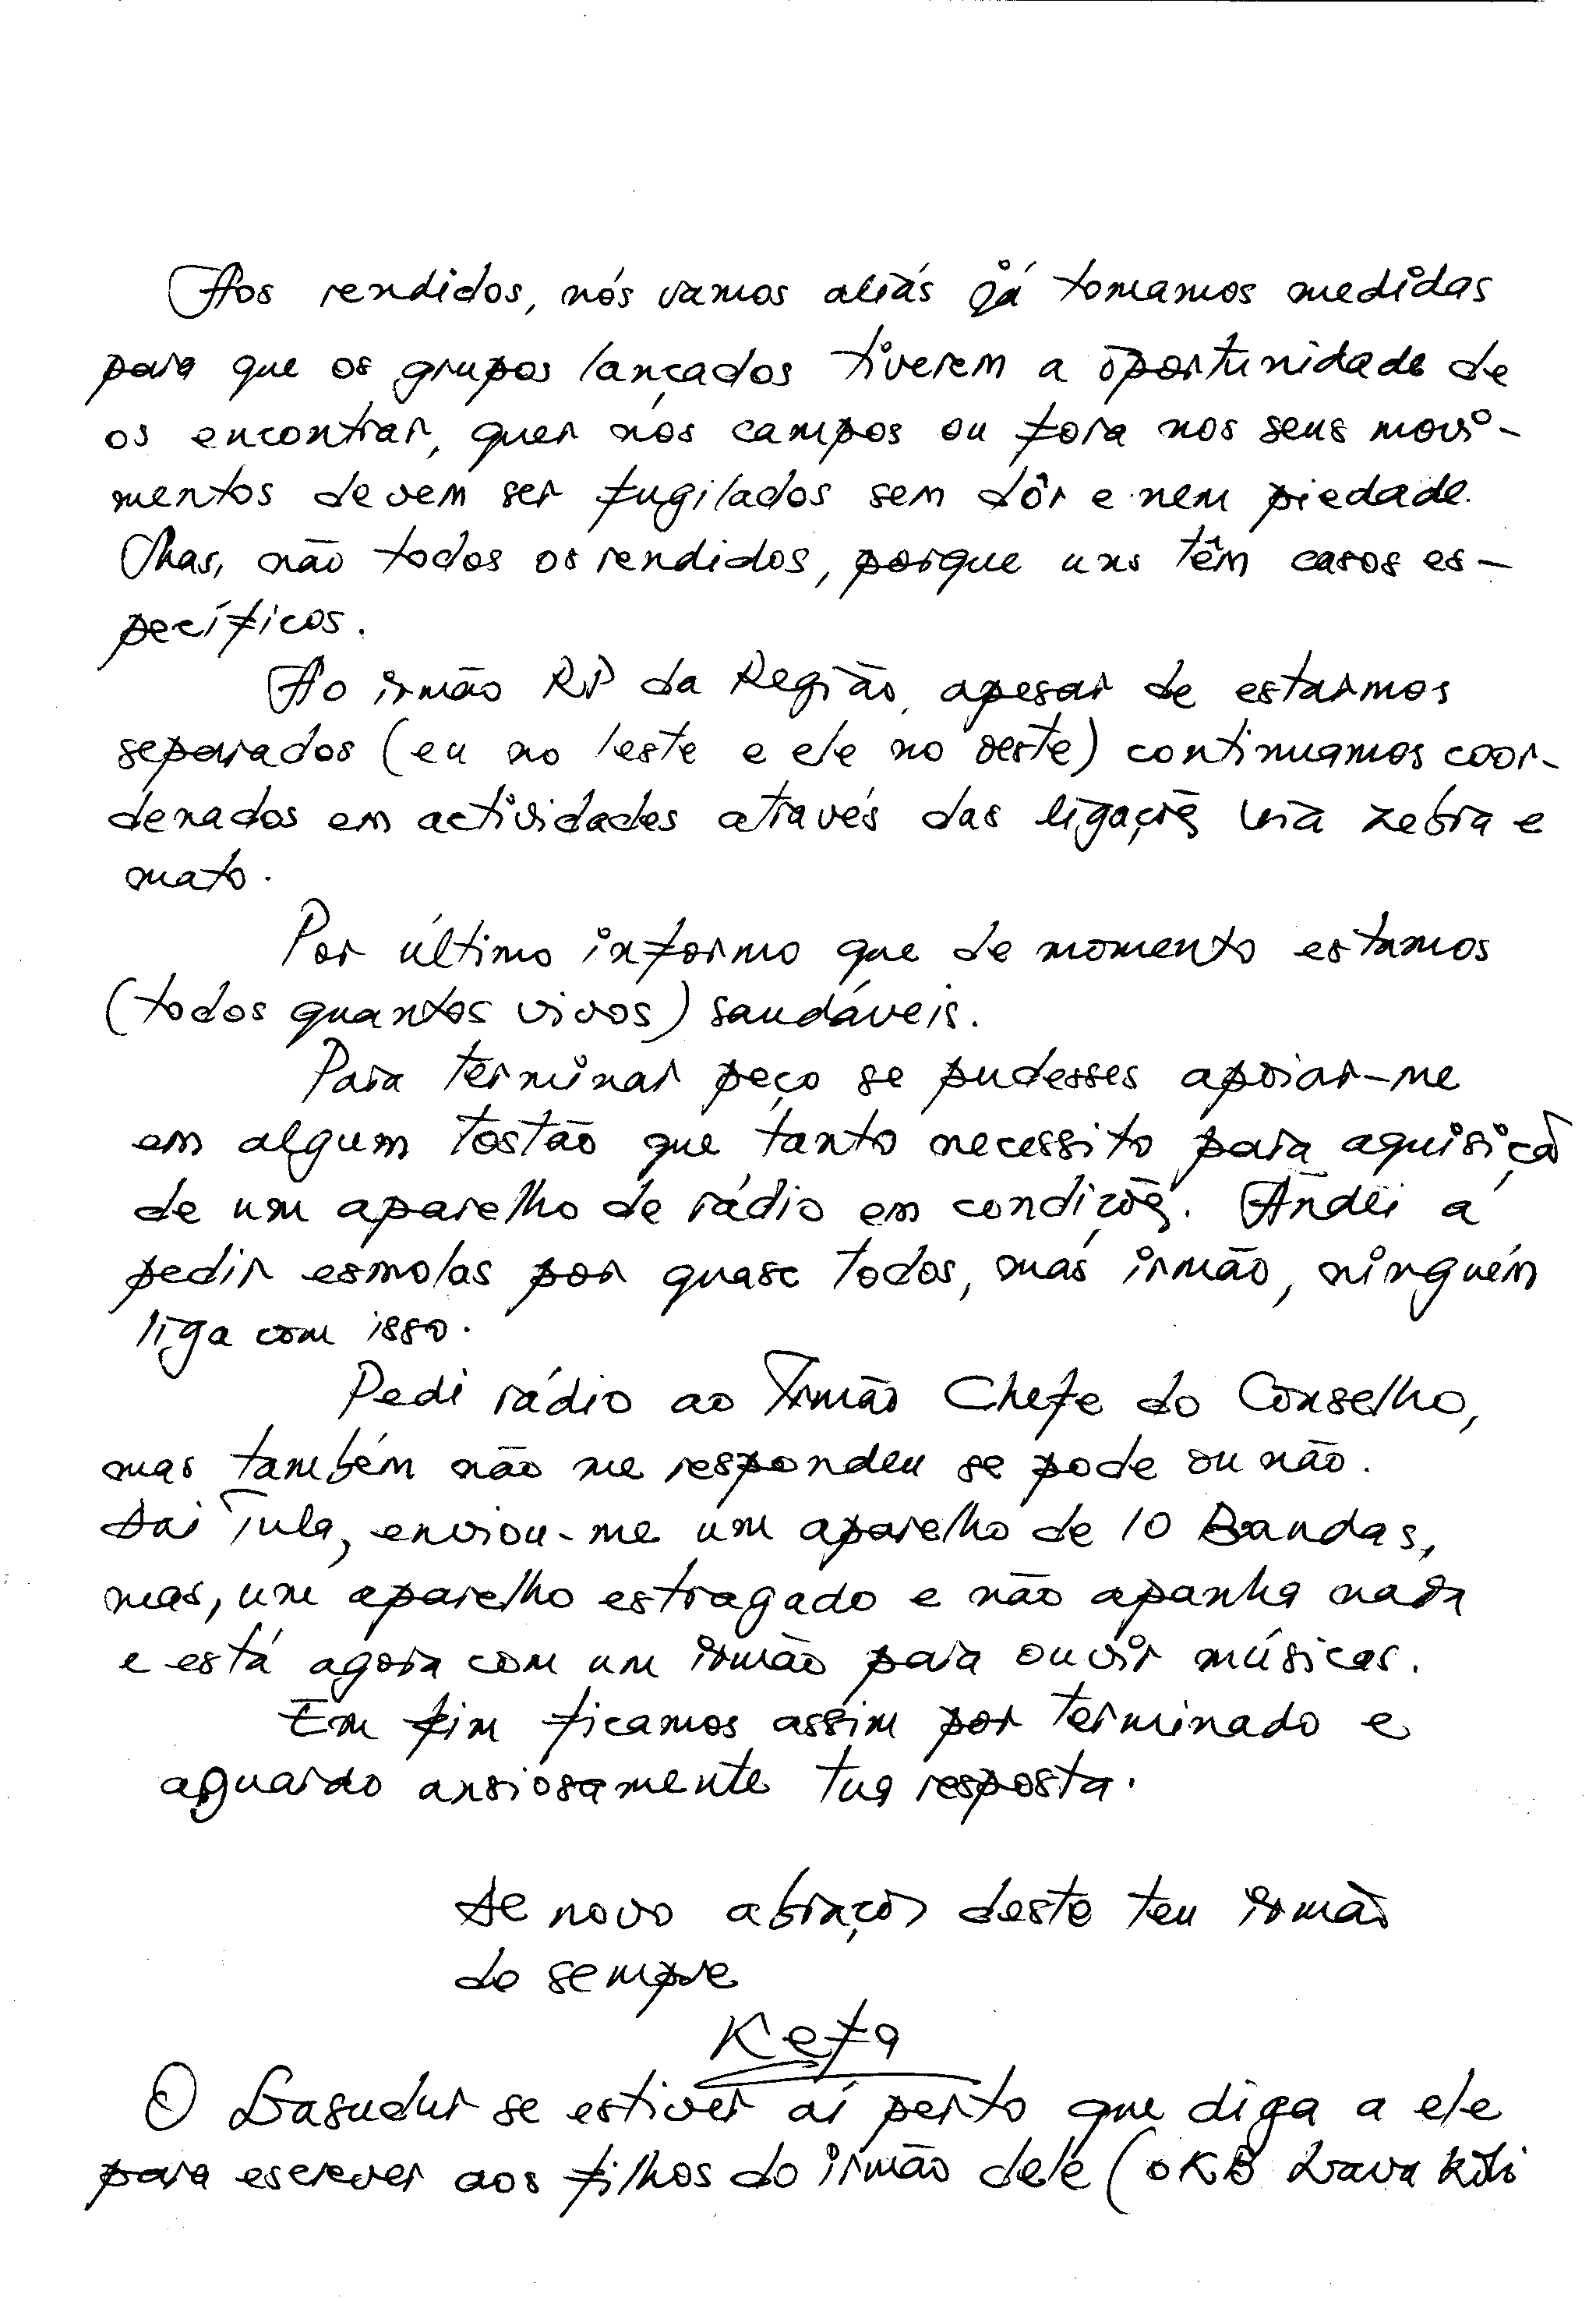 Aos rendidos, nós vamos aliás já tomamos medidas
para que os grupos lançados tiverem a oportunidade de
os encontrar, quer nos campos ou fora nos seus movi-
mentos devem ser fugilados sem dôr e nem piedade.
Mas, não todos os rendidos, porque uns têm casos es-
pecíficos.
Ao irmão RP da Região, apesar de estarmos
separados (eu no leste e ele no oeste) continuamos coor-
denados em actividades através das ligações via zebra e
mato.
Por último informo que de momento estamos
(todos quantos vivos) saudáveis.
Para terminar peço se pudesses apoiar-me
em algum tostão que tanto necessito para aquisiçã
de um aparelho de rádio em condições. Andei a
pedir esmolas por quase todos, mas irmão, ninguém
liga com isso.
Pedi rádio ao Irmão Chefe do Conselho,
mas também não me respondeu se pode ou não.
Dai Tula, enviou-me um aparelho de 10 Bandas,
mas, um aparelho estragado e não apanha nada
e está agora com um irmão para ouvir músicas.
Em fim ficamos assim por terminado e
aguardo ansiosamente tua resposta.
De novo abraços deste teu irmão
de sempre
Kefa
O Lasudur se estiver aí perto que diga a ele
para escrever aos filhos do irmão dele (o KB Lava